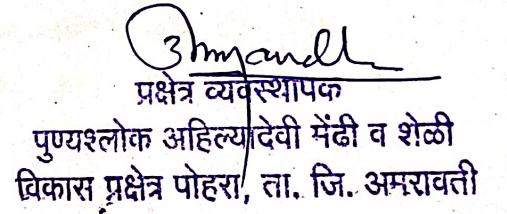 प्रक्षेत्र व्यवस्थापक
पुण्यश्लोक अहिल्यादेवी मेंढी व शेळी
विकास प्रक्षेत्र पोहरा, ता. जि. अमरावती